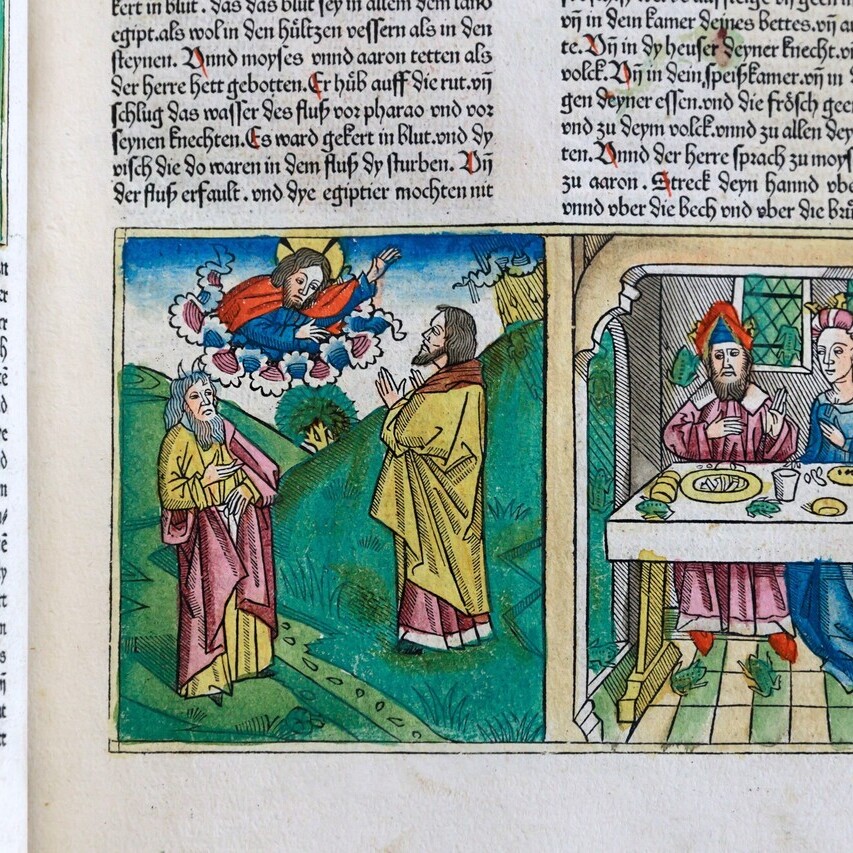 kert in blut. das das blut sey in allem dem land
egipt.als wol in den hültzen vessern als in den
steynen. Vnnd moyses vnnd aaron tetten als
der herre hett gebotten. Er hůb auff die rut.vñ
schlug das wasser des fluß vor pharao vnd vor
seynen knechten. Es ward gekert in blut.vnd dy
visch die do waren in dem fluß dy sturben. Vñ
der fluß erfault. vnd dye egiptier mochten nit
vñ in dein kamer deines bettes.vñ
te. Vñ in dy heuser deyner knecht.
volck. Vñ in dein speißkamer.vñ in
gen deyner essen.vnd die frösch
vnd zu deym volck.vnnd zu allen
ten. Vnnd der herre sprach zu
zu aaron. Streck deyn hannd
vnnd vber die bech vnd vber die